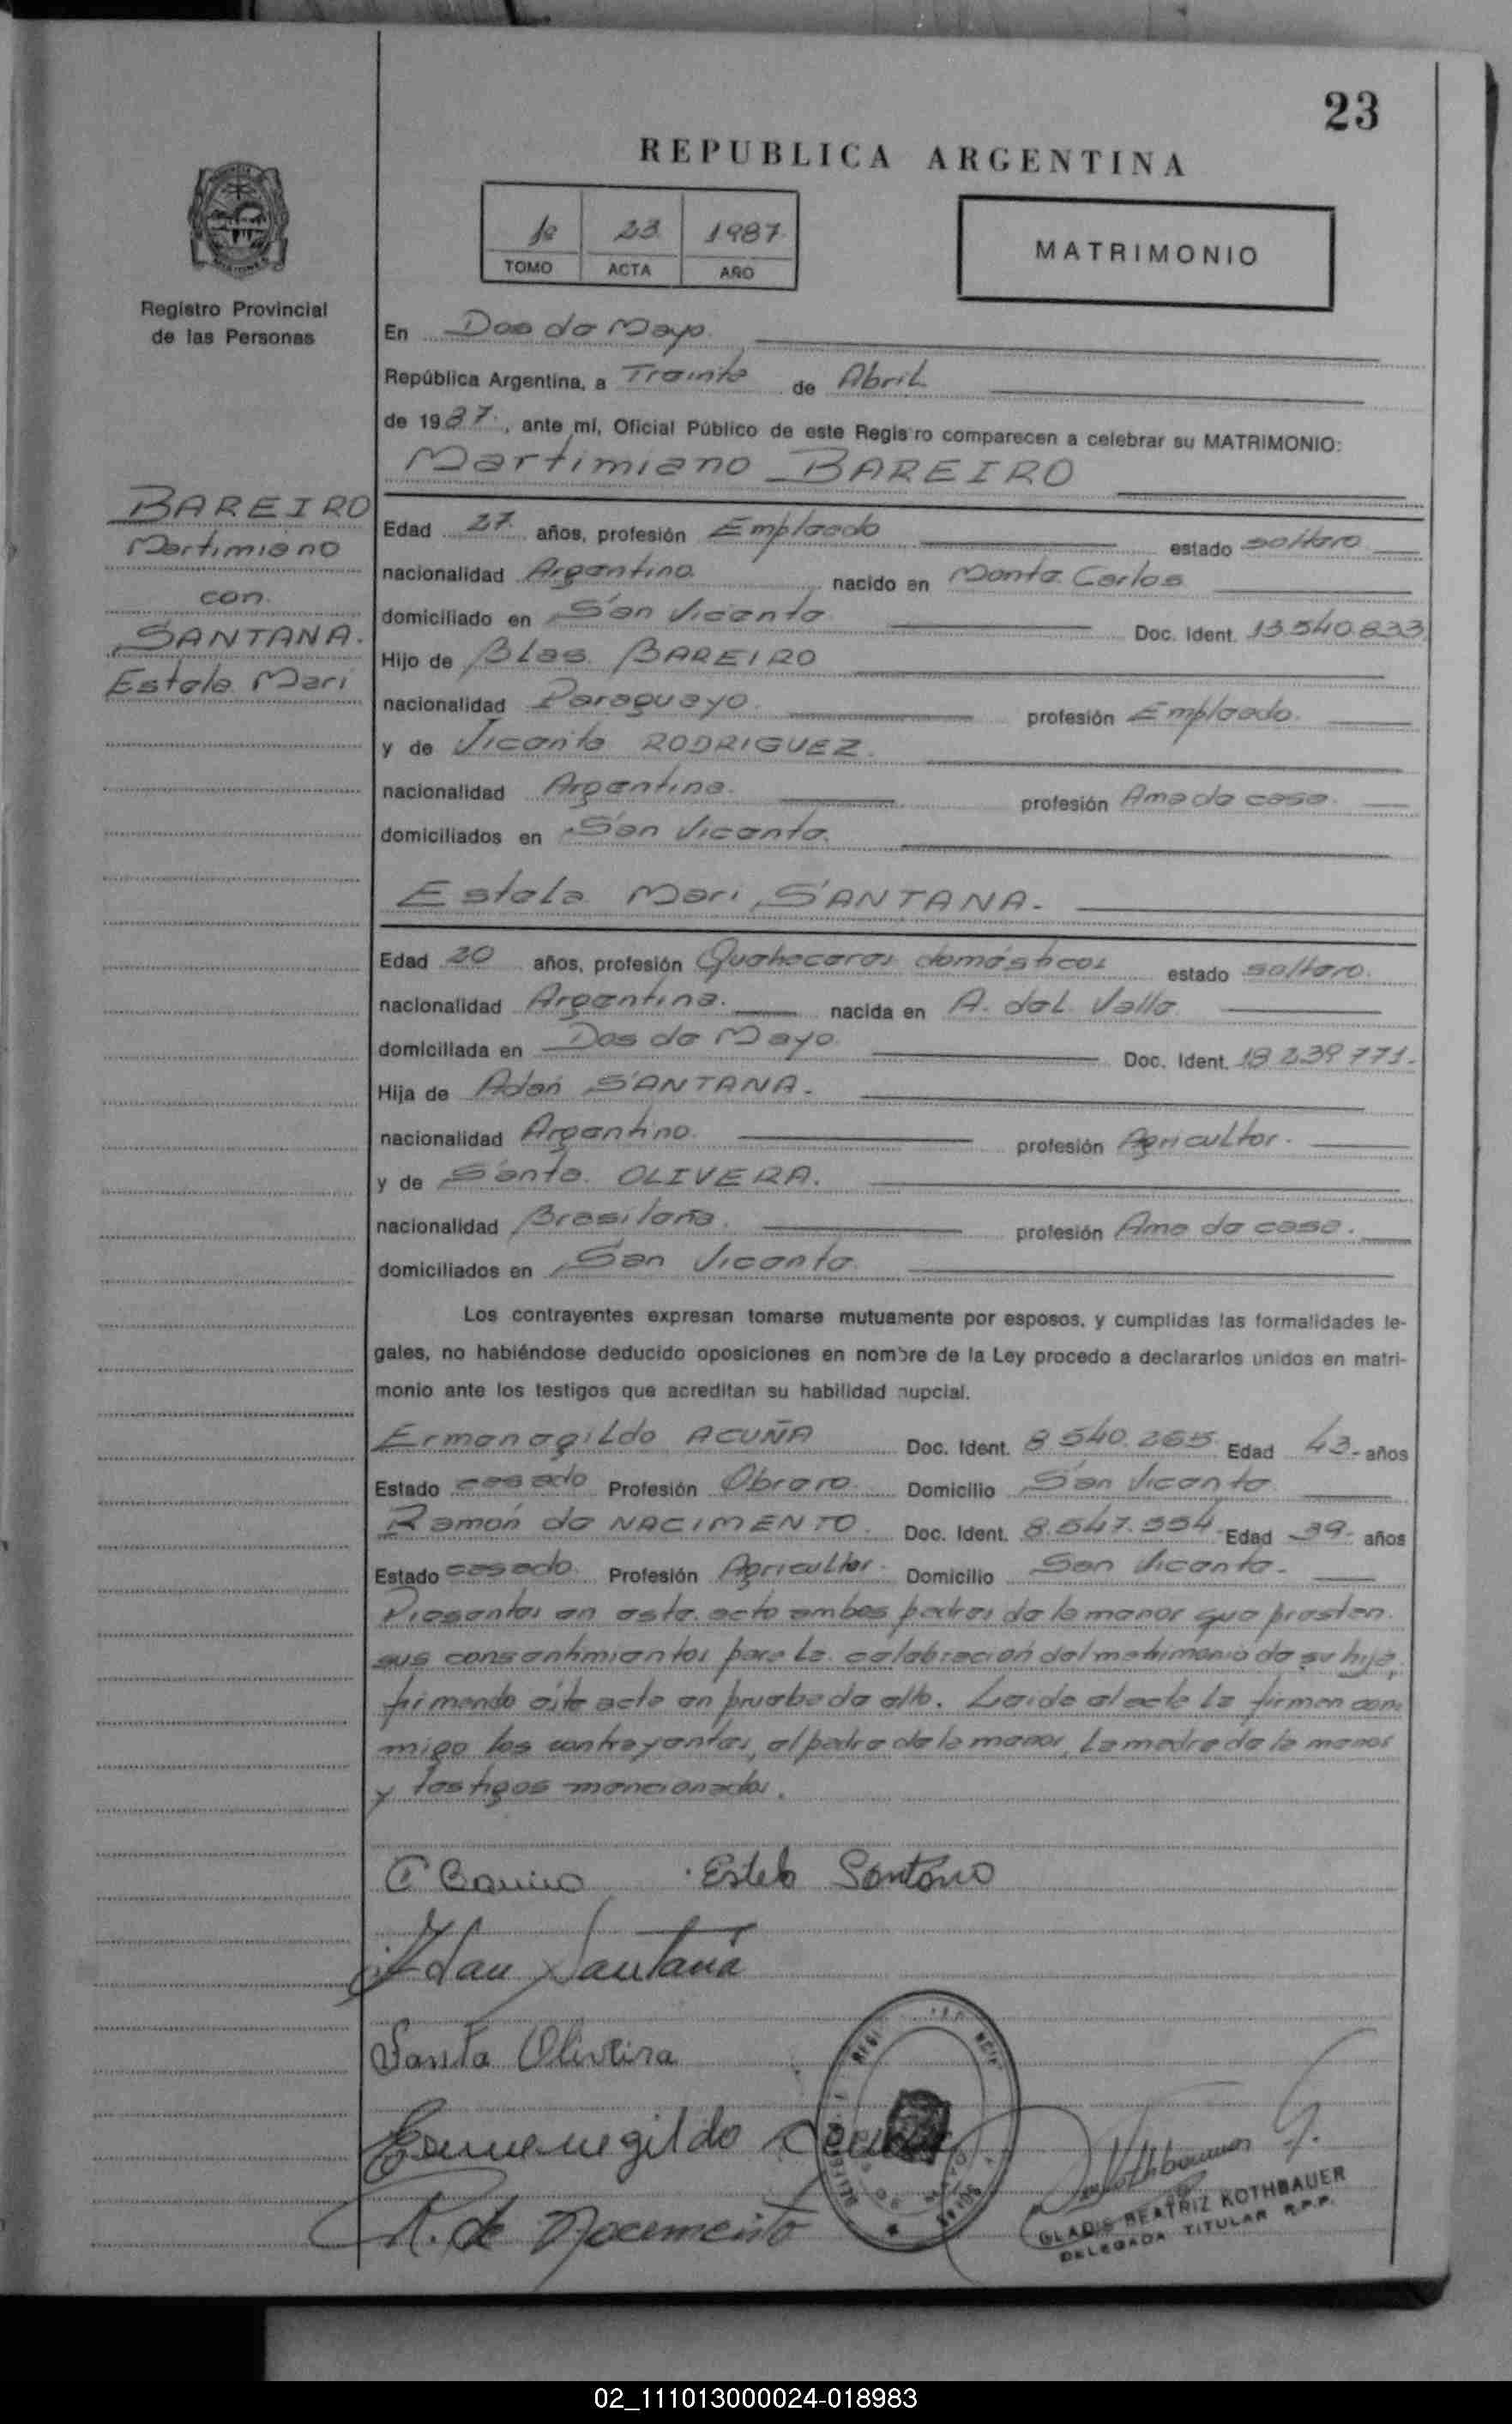 23
REPUBLICA ARGENTINA
1º 23 1987
TOMO ACTA AÑO
MATRIMONIO
Registro Provincial
de las Personas
En Dos de Mayo
República Argentina, a Treinta de Abril
de 1987, ante mí, Oficial Público de este Registro comparecen a celebrar su MATRIMONIO:
Martimiano BAREIRO
BAREIRO
Martimiano
con
SANTANA.
Estela Mari
Edad 27 años, profesión Empleado estado soltero
nacionalidad Argentina nacido en Monte Carlos
domiciliado en San Vicente Doc. Ident. 13.540.833
Hijo de Blas BAREIRO
nacionalidad Paraguayo. profesión Empleado.
y de Vicenta RODRIGUEZ.
nacionalidad Argentina. profesión Ama de casa.
domiciliados en San Vicente.
Estela Mari SANTANA.
Edad 20 años, profesión Quehaceres domésticos estado soltero.
nacionalidad Argentina. nacida en A. del Valle
domiciliada en Dos de Mayo Doc. Ident. 18.239.771.
Hija de Adán SANTANA.
nacionalidad Argentino. profesión Agricultor.
y de Santa OLIVERA.
nacionalidad Brasileña. profesión Ama de casa.
domiciliados en San Vicente.
Los contrayentes expresan tomarse mutuamente por esposos, y cumplidas las formalidades le-
gales, no habiéndose deducido oposiciones en nombre de la Ley procedo a declararlos unidos en matri-
monio ante los testigos que acreditan su habilidad nupcial.
Ermenegildo ACUÑA Doc. Ident. 8.540.265 Edad 43.- años
Estado casado Profesión Obrero. Domicilio San Vicente
Ramón de NACIMENTO. Doc. Ident. 8.547.554 Edad 39- años
Estado casado. Profesión Agricultor. Domicilio San Vicente.-
Presentes en este acto ambos padres de la menor que prestan
sus consentimientos para la celebración del matrimonio de su hija,
firmando este acto en prueba de ello. Leída el acta la firman con
migo los contrayentes, el padre de la menor, la madre de la menor
y testigos mencionados.
Estela Santana
Adan Santana
Santa Oliveira
Ermenegildo Acuña
R. de Nacemento
Kothbauer G.
GLADIS BEATRIZ KOTHBAUER
DELEGADA TITULAR R.P.P.
02_111013000024-018983